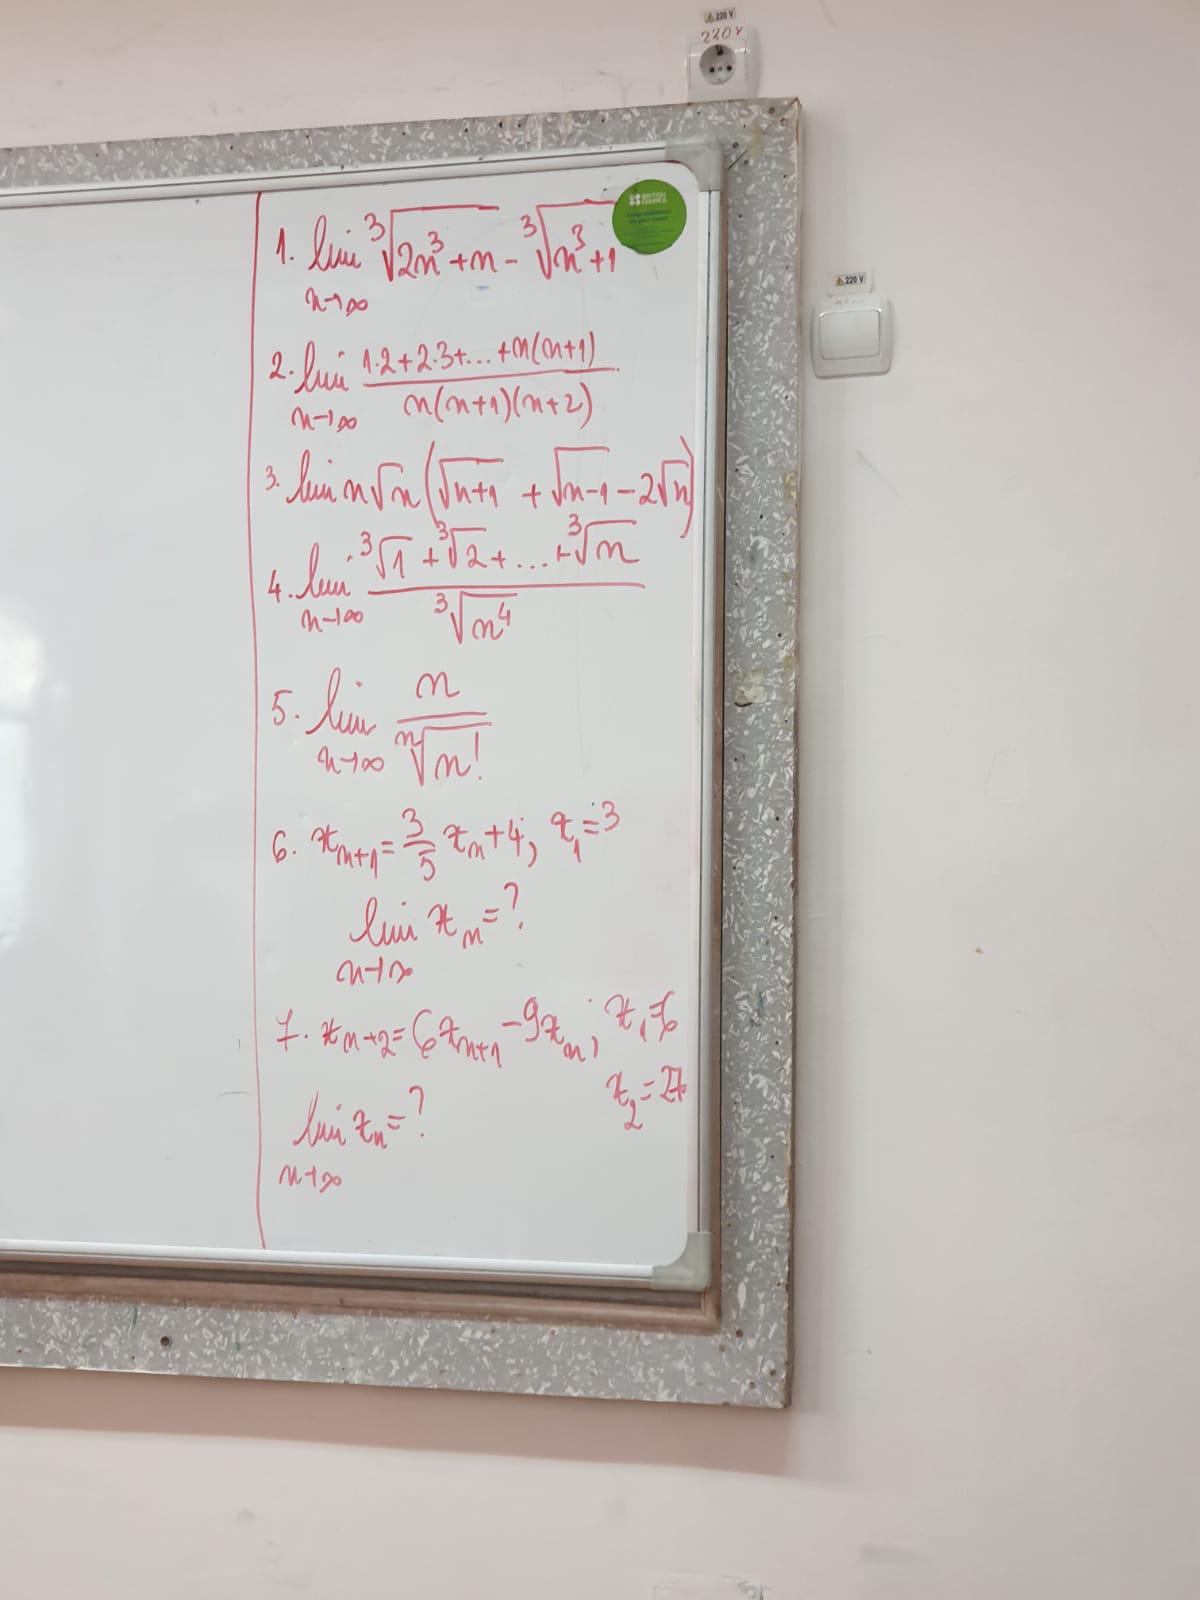 220 V
220V
BRITISH
COUNCIL
1. lim ∛(2n³+n) - ∛(n³+1)
n→∞
220 V
2. lim (1·2+2·3+...+n(n+1))/(n(n+1)(n+2))
n→∞
3. lim n√n(√(n+1) + √(n-1) - 2√n)
4. lim (∛1 + ∛2 + ... + ∛n)/∛(n⁴)
n→∞
5. lim n/ⁿ√(n!)
n→∞
6. xₙ₊₁ = 3/5 xₙ + 4, x₁ = 3
lim xₙ = ?
n→∞
7. xₙ₊₂ = 6xₙ₊₁ - 9xₙ; x₁ = 6
x₂ = 27
lim xₙ = ?
n→∞